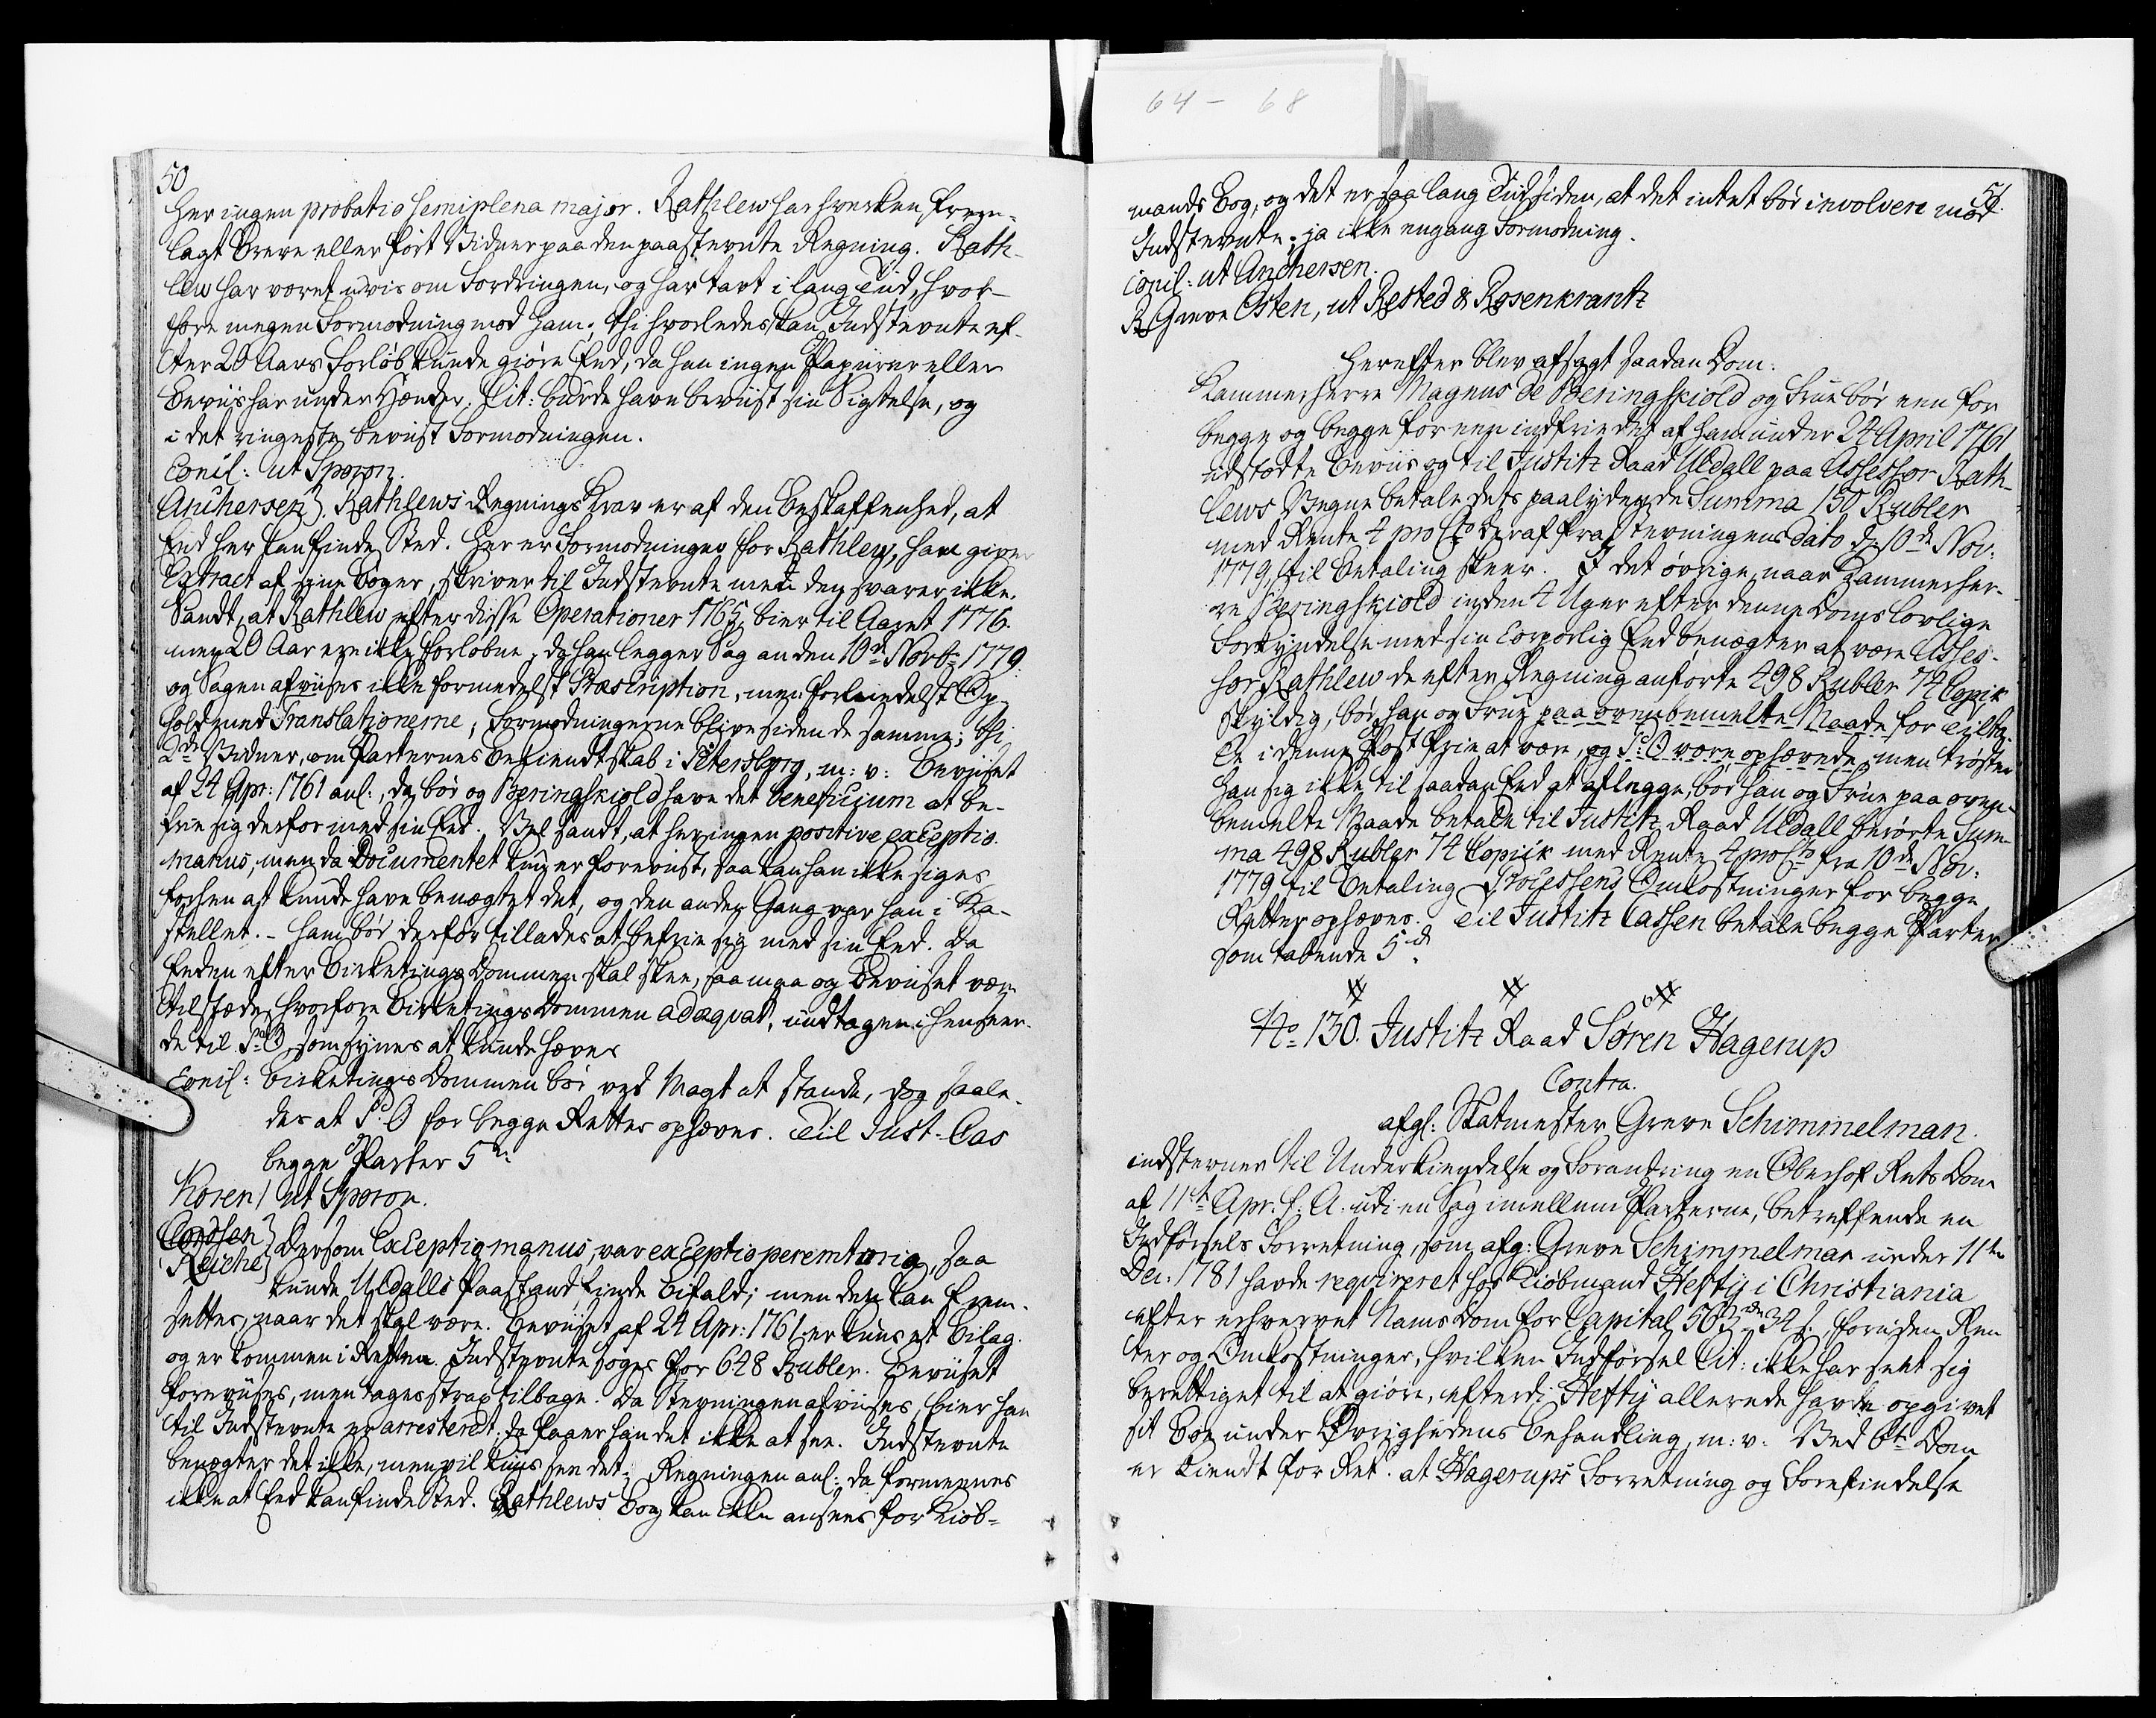 50
her ingen probatio semiplena major. Rathlew har hverken frem-
lagt Breve eller ført Vidner paa den paastevnte Regning. Rath-
lew har været uvis om Fordringen, og har tavt i lang Tiid, hvor-
fore megen Formodning mod ham; thi hvorledes kan Indstevnte ef-
ter 20 Aars Forløb kunde giøre Eed, da han ingen Papirer eller
Beviis har under Hænder. Cit: burde have beviist sin Sigtelse, og
i det ringeste beviist Formodningen.
Concl: ut Sporon.
Anchersen}. Rathlews Regnings Krav er af den Beskaffenhed, at
Eed her kan finde Sted. Her er Formodninger for Rathlew, han giver
Extract af sine Bøger, skriver til Indstevnte men den svarer ikke.
Sandt, at Rathlew efter disse Operationer 1765 bier til Aaret 1776.
men 20 Aar ere ikke forløbne, da han legger Sag an den 10de Novbr 1779.
og Sagen afviises ikke formedelst Præscription, men formedelst Op-
hold med Translationerne; Formodningerne blive siden de samme; thi
2de Vidner, om Parternes Bekiendtskab i Petersborg, m: v: Beviiset
af 24 Apr: 1761 anl:, da bør og Beringskiold have det beneficium at be-
frie sig derfor med sin Eed. Vel sandt, at her ingen positive exceptio
manus, men da Documentet kuns er foreviist, saa kan han ikke siges
forhen at kunde have benægtet det, og den anden Gang var han i Ka-
stellet. - Ham bør derfor tillades at befrie sig med sin Eed. Da
Eeden efter Birketings Dommen skal skee, saa maa og Beviiset være
tilstæde, hvorfore Birketings Dommen adæqvat, undtagen i Henseen-
de til P: O som synes at kunde hæves
Concl: Birketings Dommen bør ved Magt at stande, dog saale-
des at P: O for begge Retter ophæves. Til Just-Cas
begge Parter 5 rd:
Koren} ut Sporon.
Cordsen}
Reiche} Dersom Exceptio manus, var exceptio peremtoria, saa
kunde Uldalls Paastand finde Bifald; men den kan frem-
settes, naar det skal være. Beviiset af 24 Apr: 1761 er kuns et Bilag.
og er kommen i Retten. Indstevnte søges for 648 Rubler. Beviiset
foreviises, men tages strax tilbage. Da Stevningen afviises, bier han
til Indstevnte er arresteret; da faaer han det ikke at see. Indstevnte
benægter det ikke, men vil kuns see det. Regningen anl: da formeenes
ikke at Eed kan finde Sted. Rathlews Bog kan ikke ansees for Kiøb-
51.
mands Bog, og det er saa lang Tiid siden, at det intet bør involvere mod
Indstevnte; ja ikke engang Formodning.
Concl: ut Anchersen.
R Greve Osten, ut Rested & Rosenkrantz
Herefter blev afsagt saadan Dom:
Kammerherre Magnus de Beringskiold og Frue bør een for
begge og begge for een indfrie det af ham under 24 April 1761
udstædte Beviis og til Justitz Raad Uldall paa Assessor Rath-
lews Vegne betale dets paalydende Summa 150 Rubler
med Rente 4 pro Cto deraf fra Stevningens dato d: 10de Nov:
1779, til Betaling skeer. I det øvrige, naar Kammerher-
re Beringskiold inden 4 Uger efter denne Doms lovlige
Forkyndelse med sin Corporlig Eed benægter at være Asses-
sor Rathlew de efter Regning anførte 498 Rubler 74 Copik
skyldig, bør han og Frue paa ovenbemelte Maade for Tilta-
le i denne Post frie at være, og P: O være ophævede, men trøster
han sig ikke til saadan Eed at aflegge, bør han og Frue paa oven-
bemelte Maade betale til Justitz Raad Uldall berørte Sum-
ma 498 Rubler 74 Copiik med Rente 4 pro Cto fra 10de Nov:
1779 til Betaling Processens Omkostninger for begge
Retter ophæves. Til Justitz Cassen betale begge Parter
som tabende 5 rd.
No 130. Justitz Raad Søren Hagerup
Contra.
afgl: Skatmester Greve Schimmelman.
indstevner til Underkiendelse og Forandring en Oberhof Rets Dom
af 11te Apr. h: A. udi en Sag imellem Parterne, betreffende en
Indførsels Forretning, som afg: Greve Schimmelman under 11te
Dec: 1781 havde reqvireret hos Kiøbmand Heftÿ i Christiania
efter erhvervet Nams Dom for Capital 503 rd 34 s. foruden Ren
ter og Omkostninger, hvilken Indførsel Cit: ikke har seet sig
berettiget til at giøre, efterdi Heftÿ allerede havde opgivet
sit Boe under Øvrighedens Behandling, m: v: Ved bte Dom
er kiendt for Ret: at Hagerups Forretning og Forefindelse